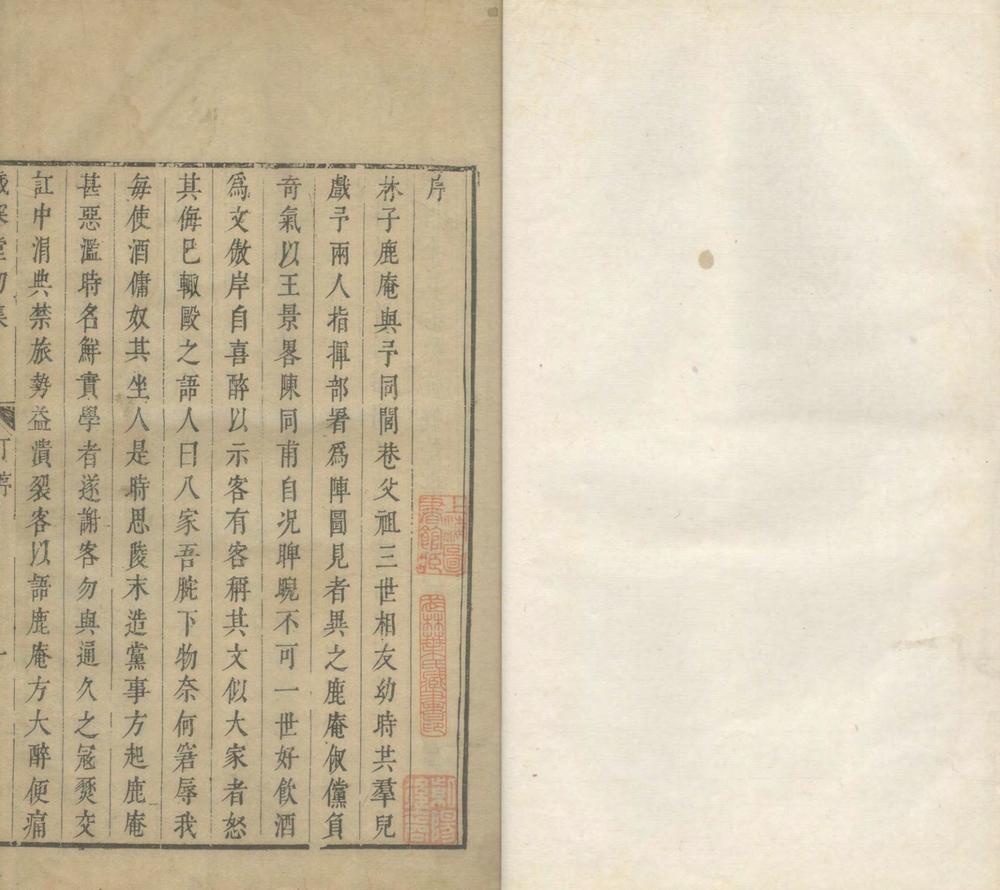 序
林子鹿庵與予同閭巷父祖三世相友幼時共羣兒
戲予兩人指揮部署爲陣圖見者異之鹿庵俶儻負
奇氣以王景畧陳同甫自况睥睨不可一世好飲酒
爲文傲岸自喜醉以示客有客稱其文似大家者怒
其侮己輙毆之語人曰八家吾腕下物奈何窘辱我
每使酒傭奴其坐人是時思陵末造黨事方起鹿庵
甚惡濫時名鮮實學者遂謝客勿與通久之冦燹交
訌中涓典禁旅勢益潰裂客以語鹿庵方大醉便痛
上海圖書館藏
武林葉氏藏書印